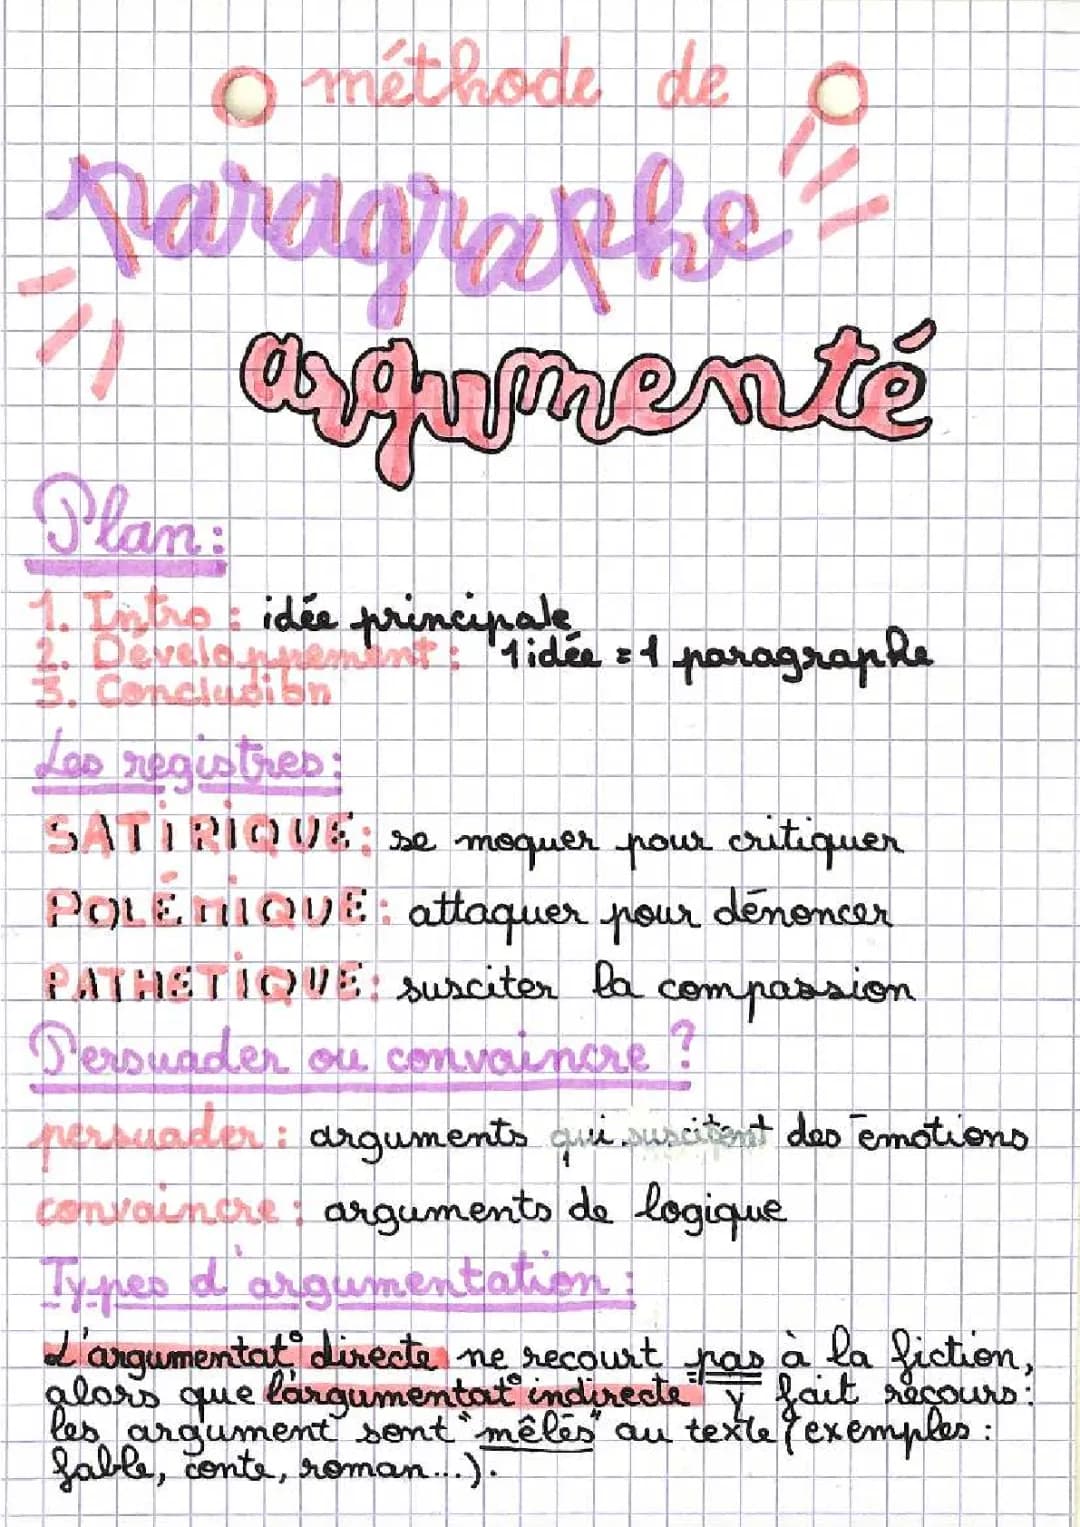 méthode de
paragraphe
argumenté
Plan:
1. Intro : idée principale
2. Développement : 1 idée = 1 paragraphe
3. Conclusion
Les registres:
SATIRIQUE: se moquer pour critiquer
POLÉMIQUE: attaquer pour dénoncer
PATHETIQUE: susciter la compassion
Persuader ou convaincre ?
persuader : arguments qui suscitent des émotions
convaincre : arguments de logique
Types d'argumentation :
L'argumentat° directe ne recourt pas à la fiction,
alors que l'argumentat° indirecte y fait recours:
les argument sont "mêlés" au texte (exemples :
fable, conte, roman...).